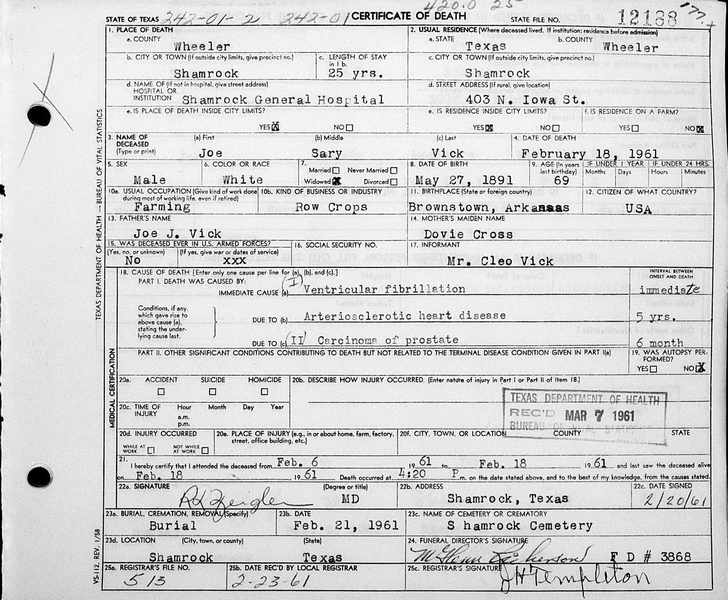 420.0 25
STATE OF TEXAS 242-01-2 242-01 CERTIFICATE OF DEATH STATE FILE NO. 12188
1. PLACE OF DEATH 2. USUAL RESIDENCE (Where deceased lived. If institution: residence before admission)
a. COUNTY a. STATE b. COUNTY
Wheeler Texas Wheeler
b. CITY OR TOWN (If outside city limits, give precinct no.) c. LENGTH OF STAY in 1 b. c. CITY OR TOWN (If outside city limits, give precinct no.)
Shamrock 25 yrs. Shamrock
d. NAME OF (If not in hospital, give street address) HOSPITAL OR INSTITUTION d. STREET ADDRESS (If rural, give location)
Shamrock General Hospital 403 N. Iowa St.
e. IS PLACE OF DEATH INSIDE CITY LIMITS? e. IS RESIDENCE INSIDE CITY LIMITS? f. IS RESIDENCE ON A FARM?
YES X NO YES X NO YES NO X
3. NAME OF DECEASED (Type or print) (a) First (b) Middle (c) Last 4. DATE OF DEATH
Joe Sary Vick February 18, 1961
5. SEX 6. COLOR OR RACE 7. Married Never Married Widowed X Divorced 8. DATE OF BIRTH 9. AGE (In years last birthday) IF UNDER 1 YEAR Months Days IF UNDER 24 HRS. Hours Min.
Male White May 27, 1891 69
10a. USUAL OCCUPATION (Give kind of work done during most of working life, even if retired) 10b. KIND OF BUSINESS OR INDUSTRY 11. BIRTHPLACE (State or foreign country) 12. CITIZEN OF WHAT COUNTRY?
Farming Row Crops Brownstown, Arkansas USA
13. FATHER'S NAME 14. MOTHER'S MAIDEN NAME
Joe J. Vick Dovie Cross
15. WAS DECEASED EVER IN U.S. ARMED FORCES? (Yes, no, or unknown) (If yes, give war or dates of service) 16. SOCIAL SECURITY NO. 17. INFORMANT
No xxx Mr. Cleo Vick
18. CAUSE OF DEATH [Enter only one cause per line for (a), (b), and (c).] INTERVAL BETWEEN ONSET AND DEATH
PART I. DEATH WAS CAUSED BY: (I)
IMMEDIATE CAUSE (a) Ventricular fibrillation immediate
Conditions, if any, which gave rise to above cause (a), stating the underlying cause last.
DUE TO (b) Arteriosclerotic heart disease 5 yrs.
DUE TO (c) (II) Carcinoma of prostate 6 month
PART II. OTHER SIGNIFICANT CONDITIONS CONTRIBUTING TO DEATH BUT NOT RELATED TO THE TERMINAL DISEASE CONDITION GIVEN IN PART I(a) 19. WAS AUTOPSY PERFORMED?
YES NO X
20a. ACCIDENT SUICIDE HOMICIDE 20b. DESCRIBE HOW INJURY OCCURRED (Enter nature of injury in Part I or Part II of item 18.)
20c. TIME OF INJURY Hour a.m. p.m. Month Day Year
TEXAS DEPARTMENT OF HEALTH
REC'D MAR 7 1961
BUREAU OF STATISTICS
20d. INJURY OCCURRED WHILE AT WORK NOT WHILE AT WORK 20e. PLACE OF INJURY (e.g., in or about home, farm, factory, street, office building, etc.) 20f. CITY, TOWN, OR LOCATION COUNTY STATE
21. I hereby certify that I attended the deceased from Feb. 6 1961 to Feb. 18 1961 and last saw the deceased alive
on Feb. 18 1961 Death occurred at 4:20 P. m. on the date stated above, and to the best of my knowledge, from the causes stated.
22a. SIGNATURE (Degree or title) 22b. ADDRESS 22c. DATE SIGNED
Zeigler MD Shamrock, Texas 2/20/61
23a. BURIAL, CREMATION, REMOVAL (Specify) 23b. DATE 23c. NAME OF CEMETERY OR CREMATORY
Burial Feb. 21, 1961 S hamrock Cemetery
23d. LOCATION (City, town, or county) (State) 24. FUNERAL DIRECTOR'S SIGNATURE
Shamrock Texas F D # 3868
25a. REGISTRAR'S FILE NO. 25b. DATE REC'D BY LOCAL REGISTRAR 25c. REGISTRAR'S SIGNATURE
513 2-23-61 JH Templeton
TEXAS DEPARTMENT OF HEALTH — BUREAU OF VITAL STATISTICS
MEDICAL CERTIFICATION
VS-112, REV. 1/58